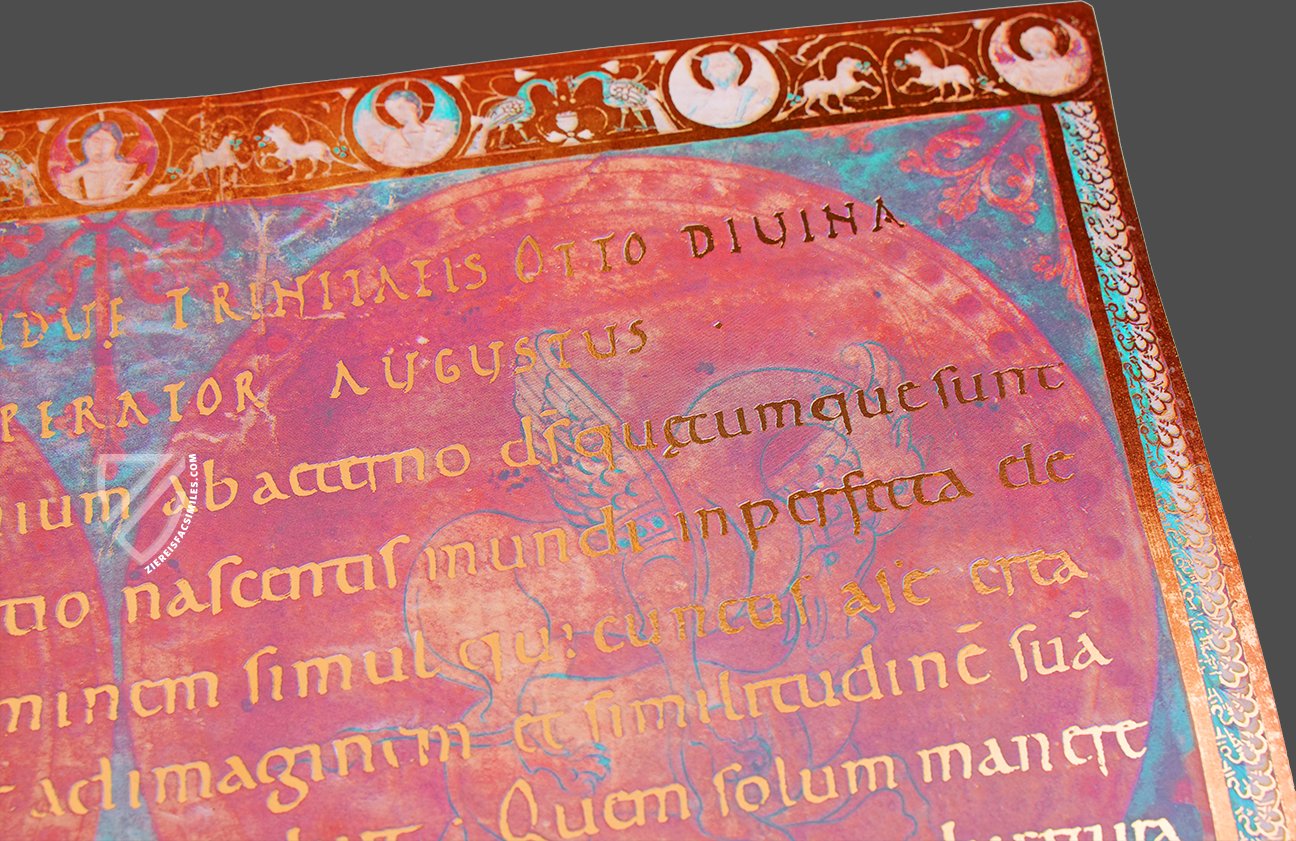 IDUE TRINITATIS OTTO DIUINA
PERATOR AUGUSTUS
ab aeterno ds quaecumque sunt
tio nascentis mundi inperfecta ele
minem simul qui cunctis
ad imaginem et similitudinē suā
Quem solum manere
ZIEREISFACSIMILES.COM